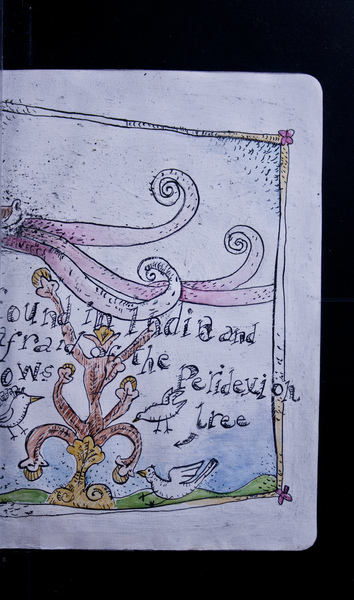 found in India and
afraid of the
ows
Peridevion
tree